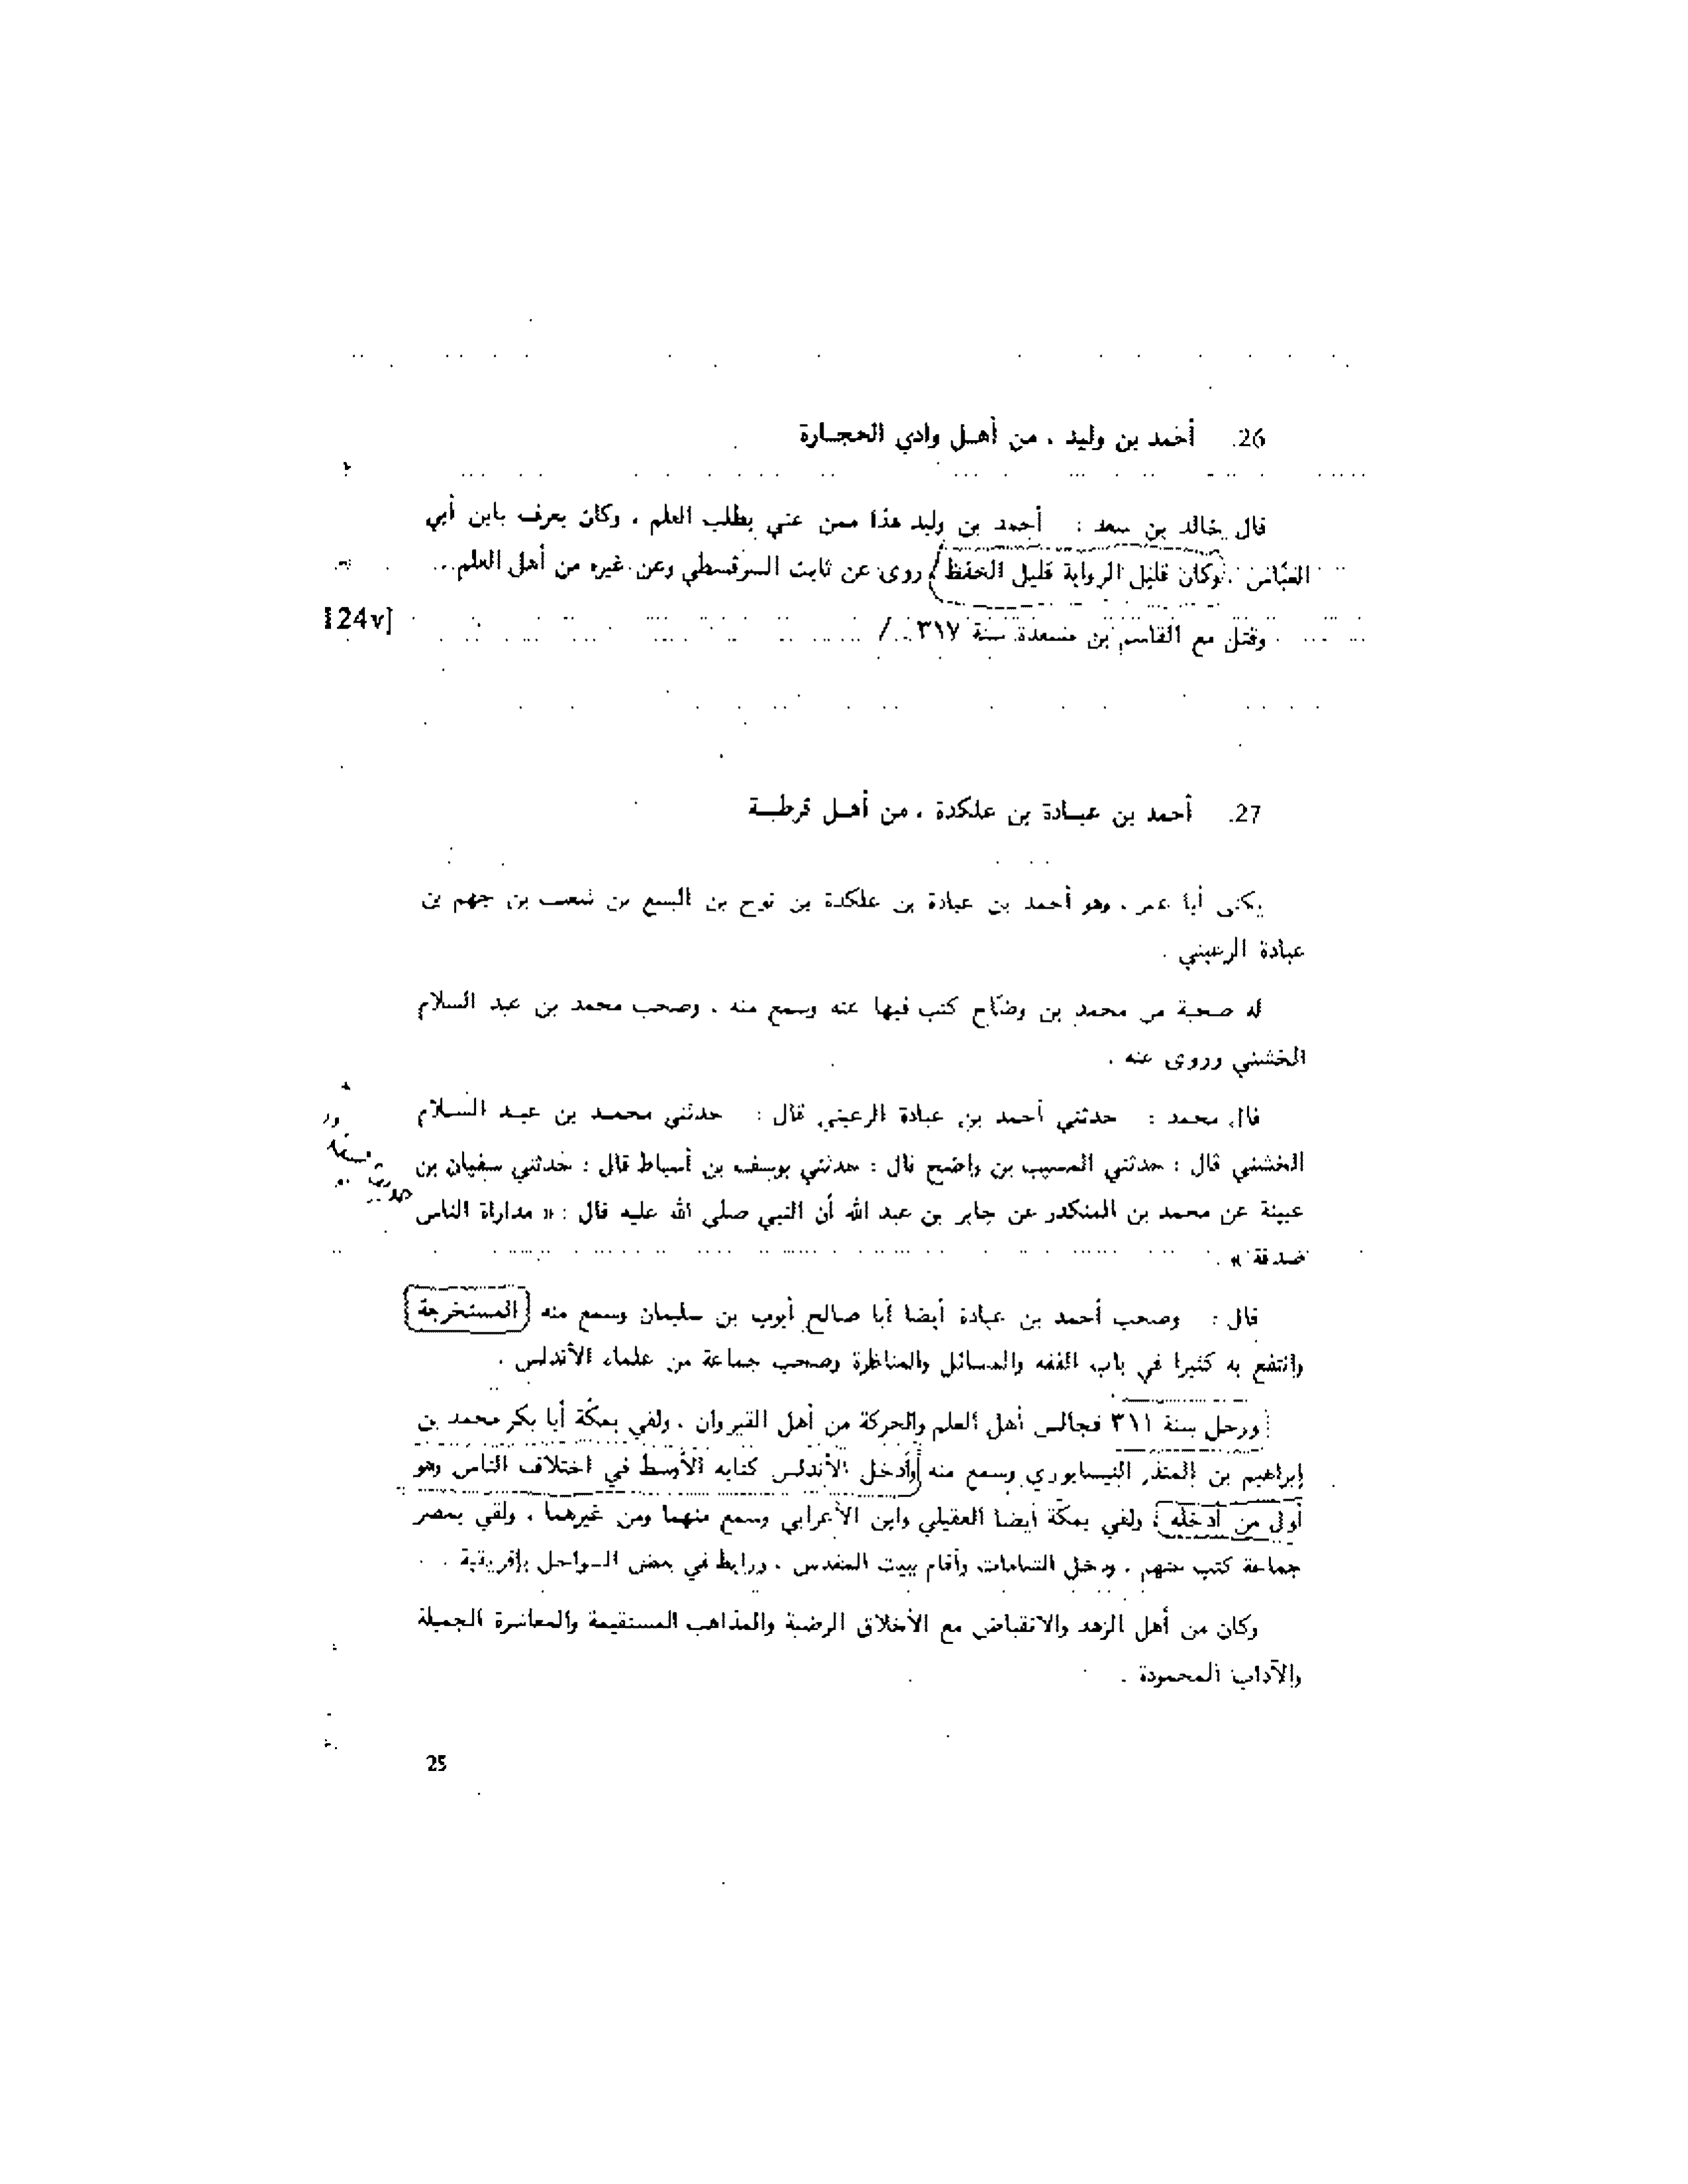 26. أحمد بن وليد ، من أهـل وادي الحجـارة
قال خالد بن سعد : أحمد بن وليد هذا ممن عني بطلب العلم ، وكان يعرف بابن أبي
العبّاس ، وكان قليل الرواية قليل الحفظ ، روى عن ثابت السرقسطي وعن غيره من أهل العلم
وقتل مع القاسم بن مسعدة سنة ٣١٧ . /
[124v]
27. أحمد بن عبـادة بن علكدة ، من أهـل قرطبـة
يكنى أبا عمر ، وهو أحمد بن عبادة بن علكدة بن نوح بن اليسع بن شعيب بن جهم بن
عبادة الرعيني .
له صحبة من محمد بن وضّاح كتب فيها عنه وسمع منه ، وصحب محمد بن عبد السلام
الخشني وروى عنه .
قال محمد : حدثني أحمد بن عبادة الرعيني قال : حدثني محمـد بن عبـد السـلام
الخشني قال : حدثني المسيب بن واضح قال : حدثني يوسف بن أسباط قال : حدثني سفيان بن
عيينة عن محمد بن المنكدر عن جابر بن عبد الله أن النبي صلى الله عليه قال : « مداراة الناس
صدقة » .
قال : وصحب أحمد بن عبادة أيضا أبا صالح أيوب بن سليمان وسمع منه المستخرجة
وانتفع به كثيرا في باب الفقه والمسائل والمناظرة وصحب جماعة من علماء الأندلس .
ورحل سنة ٣١١ فجالس أهل العلم والحركة من أهل القيروان ، ولقي بمكّة أبا بكر محمد بن
إبراهيم بن المنذر النيسابوري وسمع منه وأدخل الأندلس كتابه الأوسط في اختلاف الناس وهو
أول من أدخله ، ولقي بمكّة أيضا العقيلي وابن الأعرابي وسمع منهما ومن غيرهما ، ولقي بمصر
جماعة كتب عنهم ، ودخل الشامات وأقام ببيت المقدس ، ورابط في بعض السواحل بإفريقية .
وكان من أهل الزهد والانقباض مع الأخلاق الرضية والمذاهب المستقيمة والمعاشرة الجميلة
والآداب المحمودة .
25